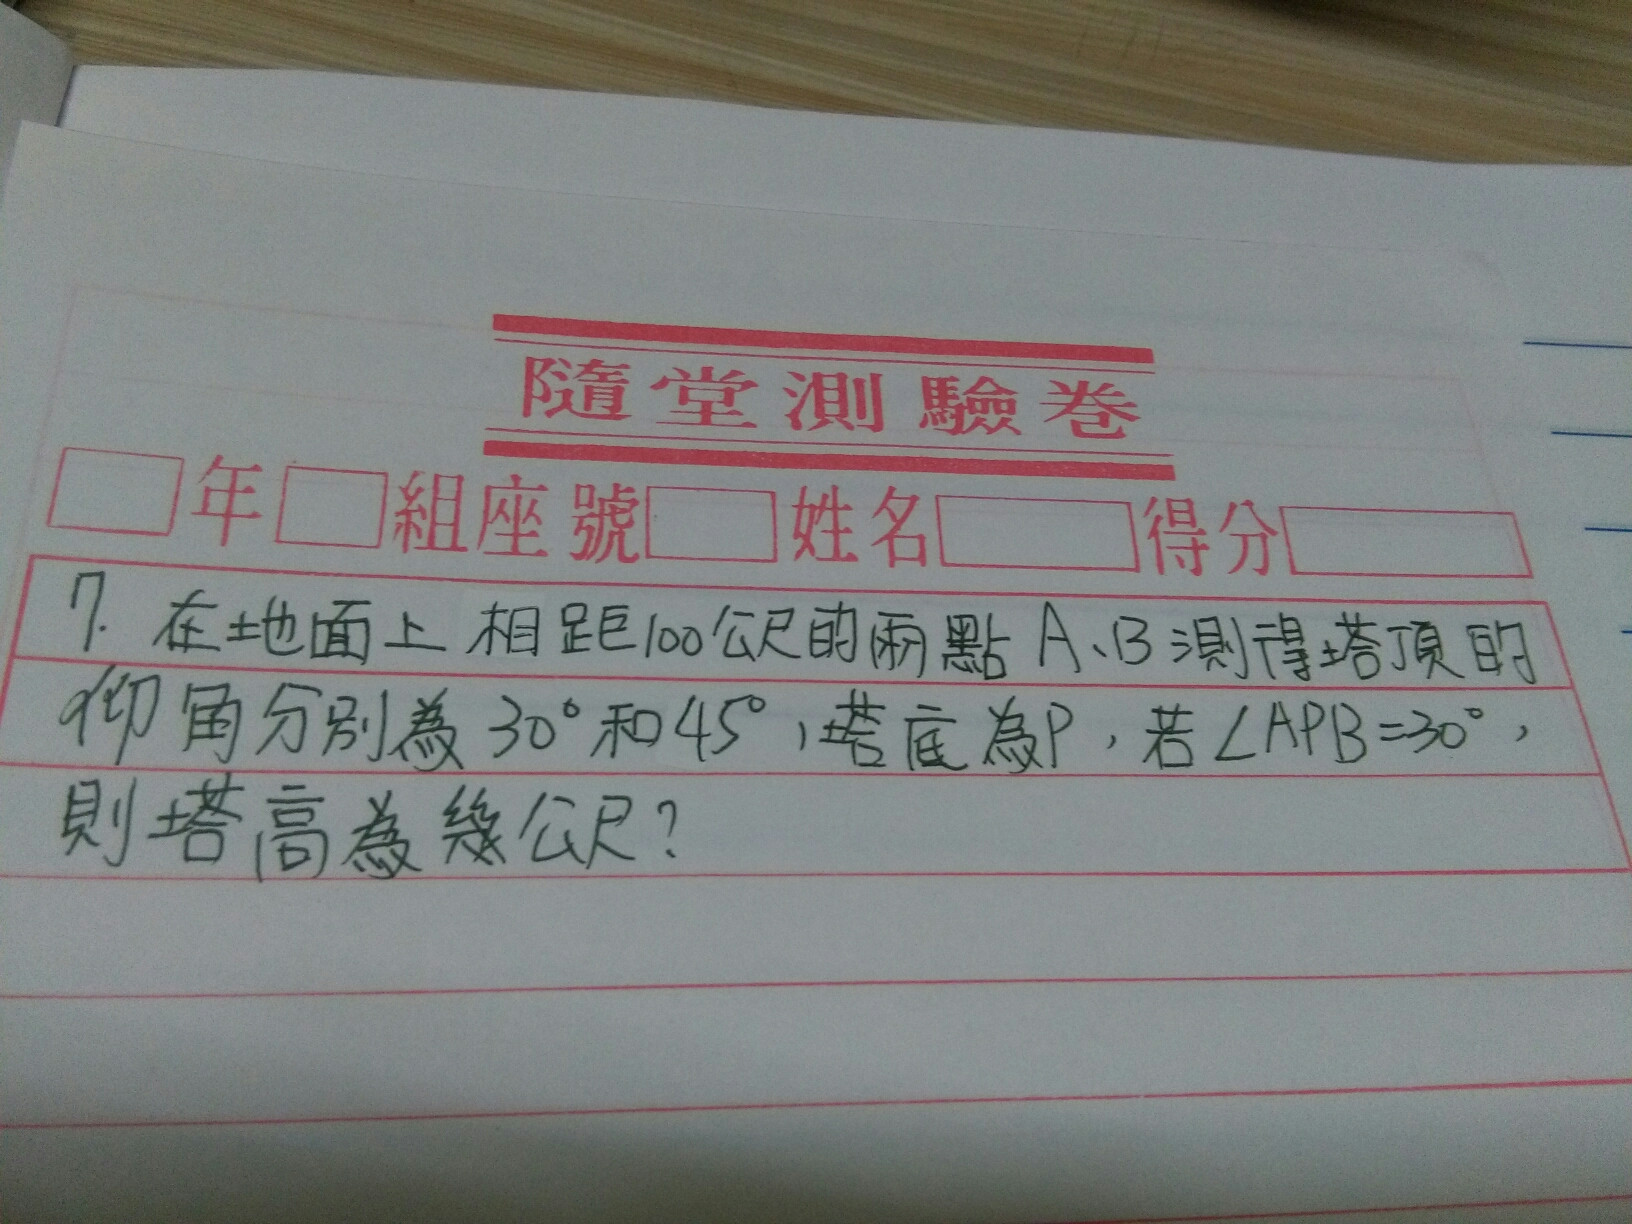 隨堂測驗卷
年 組座號 姓名 得分
7. 在地面上相距100公尺的兩點A、B測得塔頂的
仰角分別為30°和45°，塔底為P，若∠APB=30°，
則塔高為幾公尺?